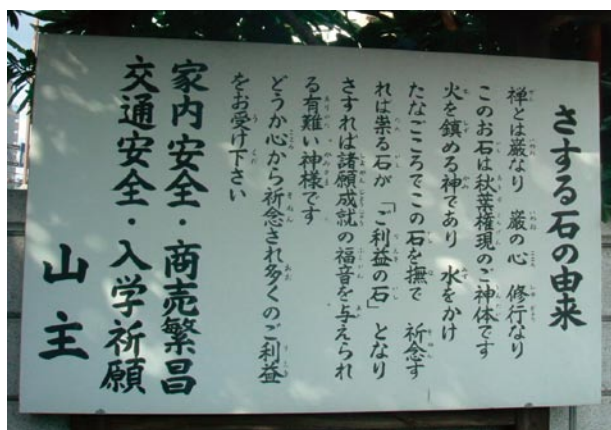 さする石の由来
禅とは巌なり 巌の心 修行なり
このお石は秋葉権現のご神体です
火を鎮める神であり 水をかけ
たなごころでこの石を撫で 祈念す
れば祟る石が「ご利益の石」となり
さすれば諸願成就の福音を与えられ
る有難い神様です
どうか心から祈念され多くのご利益
をお受け下さい
家内安全・商売繁昌
交通安全・入学祈願
山主